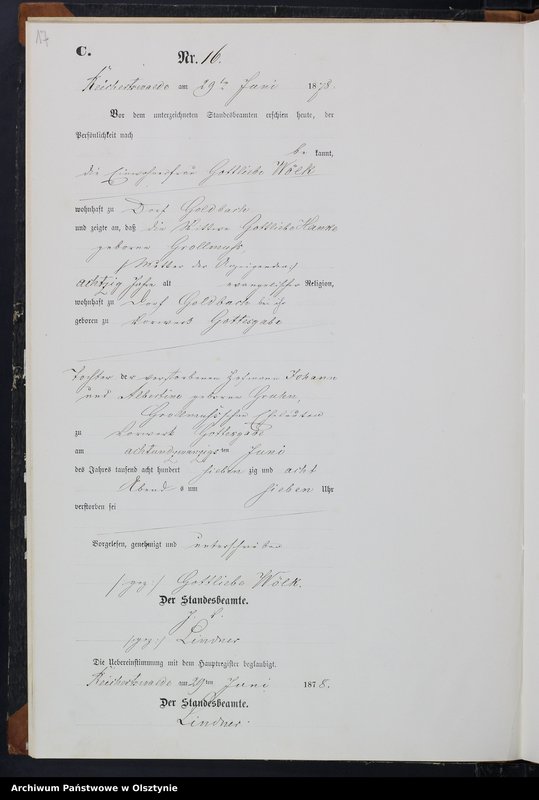 17
C.
Nr. 16.
Reichertswalde am 29ten Juni 1878.
Vor dem unterzeichneten Standesbeamten erschien heute, der
Persönlichkeit nach
be kannt,
die Einwohnerfrau Gottliebe Wölk
wohnhaft zu Dorf Goldbach
und zeigte an, daß die Wittwe Gottliebe Hanke
geborene Grollmuß
/: Mutter der Anzeigenden :/
achtzig Jahre alt evangelischer Religion,
wohnhaft zu Dorf Goldbach bei ihr
geboren zu Vorwerk Gottesgabe
Tochter der verstorbenen Hofmann Johann
und Albertine geborene Gruhn,
Grollmuß'schen Eheleuten
zu Vorwerk Gottesgabe
am achtundzwanzigsten Juni
des Jahres tausend acht hundert sieben zig und acht
Abend s um sieben Uhr
verstorben sei
Vorgelesen, genehmigt und unterschrieben
/: gez :/ Gottliebe Wölk.
Der Standesbeamte.
/: gez :/ Lindner
Die Uebereinstimmung mit dem Hauptregister beglaubigt.
Reichertswalde am 29ten Juni 1878.
Der Standesbeamte.
Lindner.
Archiwum Państwowe w Olsztynie